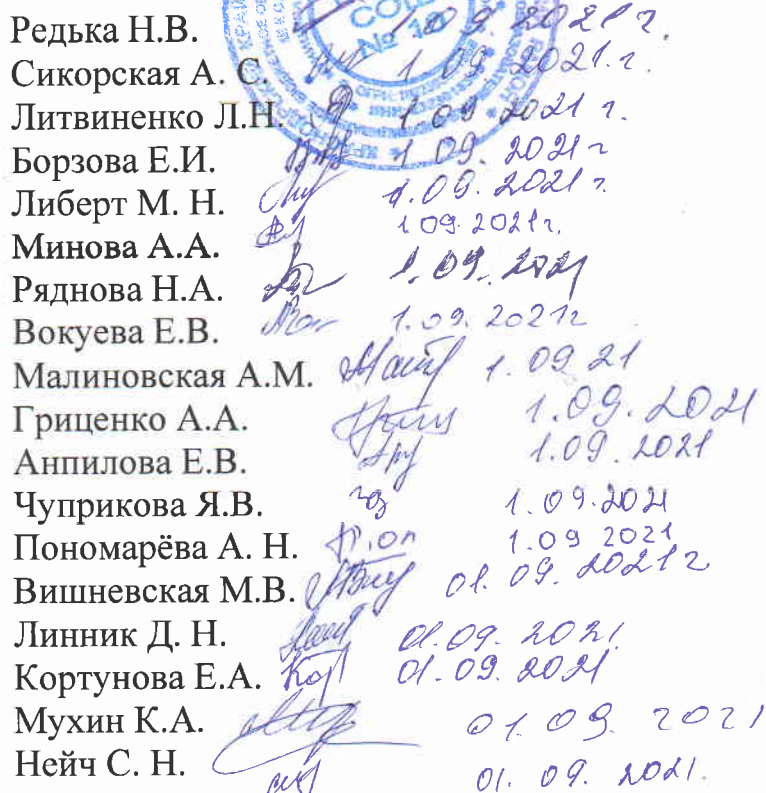 Редька Н.В. 1.09.2021г.
Сикорская А. С. 1.09.2021.г.
Литвиненко Л.Н. 1.09 2021 г.
Борзова Е.И. 1.09.2021 г
Либерт М. Н. 1.09.2021 г.
Минова А.А. 1 09.2021г.
Ряднова Н.А. 1.09.2021
Вокуева Е.В. 1.09.2021г
Малиновская А.М. 1.09 21
Гриценко А.А. 1.09.2021
Анпилова Е.В. 1.09.2021
Чуприкова Я.В. 1.09.2021
Пономарёва А. Н. 1.09 2021
Вишневская М.В. 01.09.2021г
Линник Д. Н. 01.09.2021.
Кортунова Е.А. 01.09.2021
Мухин К.А. 01.09.2021
Нейч С. Н. 01.09.2021.